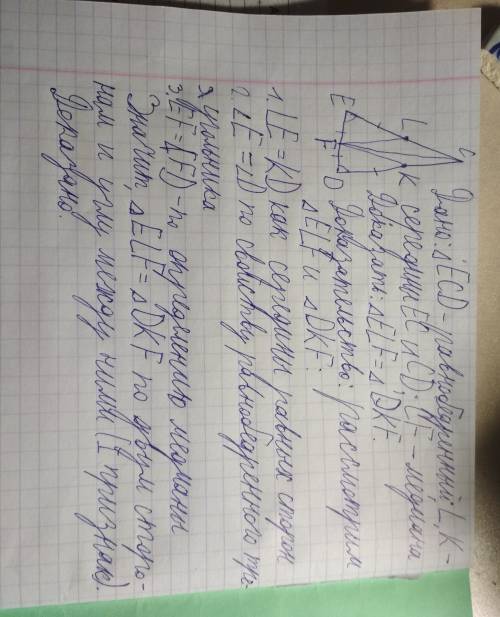 Дано: △ECD - равнобедренный, L, K -
середины EC и CD. CF - медиана
Доказать: △ELF = △DKF.
Доказательство: рассмотрим
△ELF и △DKF:
C
L
K
E
F
D
1. LE = KD как середины равных сторон
2. ∠E = ∠D по свойству равнобедренного тре-
угольника
3. EF = (FD) - по определению медианы
Значит, △ELF = △DKF по двум сторо-
нам и углу между ними (I признак).
Доказано.